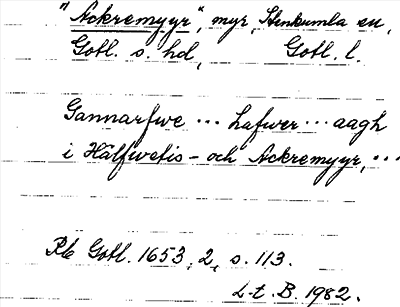 "Ackremyyr", myr, Stenkumla sn,
Gotl. s. hd, Gotl. l.
Gannarfwe ... hafwer ... aagh
i Hälfwetis- och Ackremyyr, ...
Rb Gotl. 1653, 2, s. 113.
L-t. B. 1982.